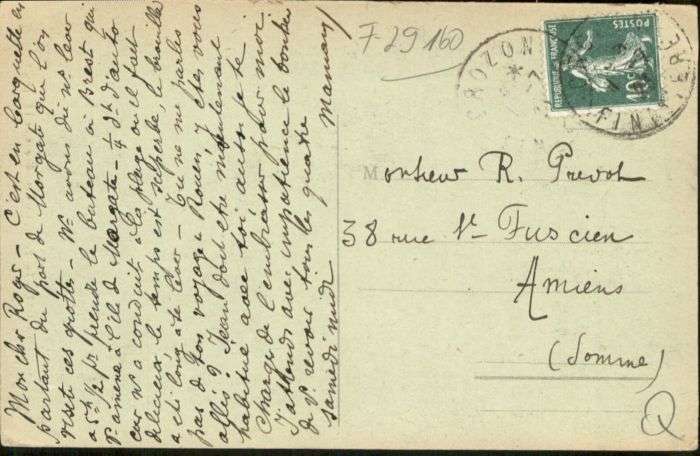 Mon cher Roger - C'est en barquette en
partant du port de Morgat que l'on
visite ces grottes - Ns avons dû ns lever
à 5h ½ pr prendre le bateau à Brest qui
ns amène à l'île de Morgate - ¼ d'h d'auto
car ns a conduit à la plage où il fait
délicieux le temps est superbe, le brouillard
a été long à se lever - Tu ne me parles
pas de ton voyage à Rouen y êtes vous
allés ? Jean doit être maintenant
habitué avec toi aussi je te
charge de l'embrasser pour moi
J'attends avec impatience le bonheur
de vs revoir tous les quatre
samedi midi
Maman
F 29160
CROZON
FINISTERE
POSTES
10c
REPUBLIQUE FRANÇAISE
Monsieur R. Prevot
38 rue St Fuscien
Amiens
(Somme)
Q